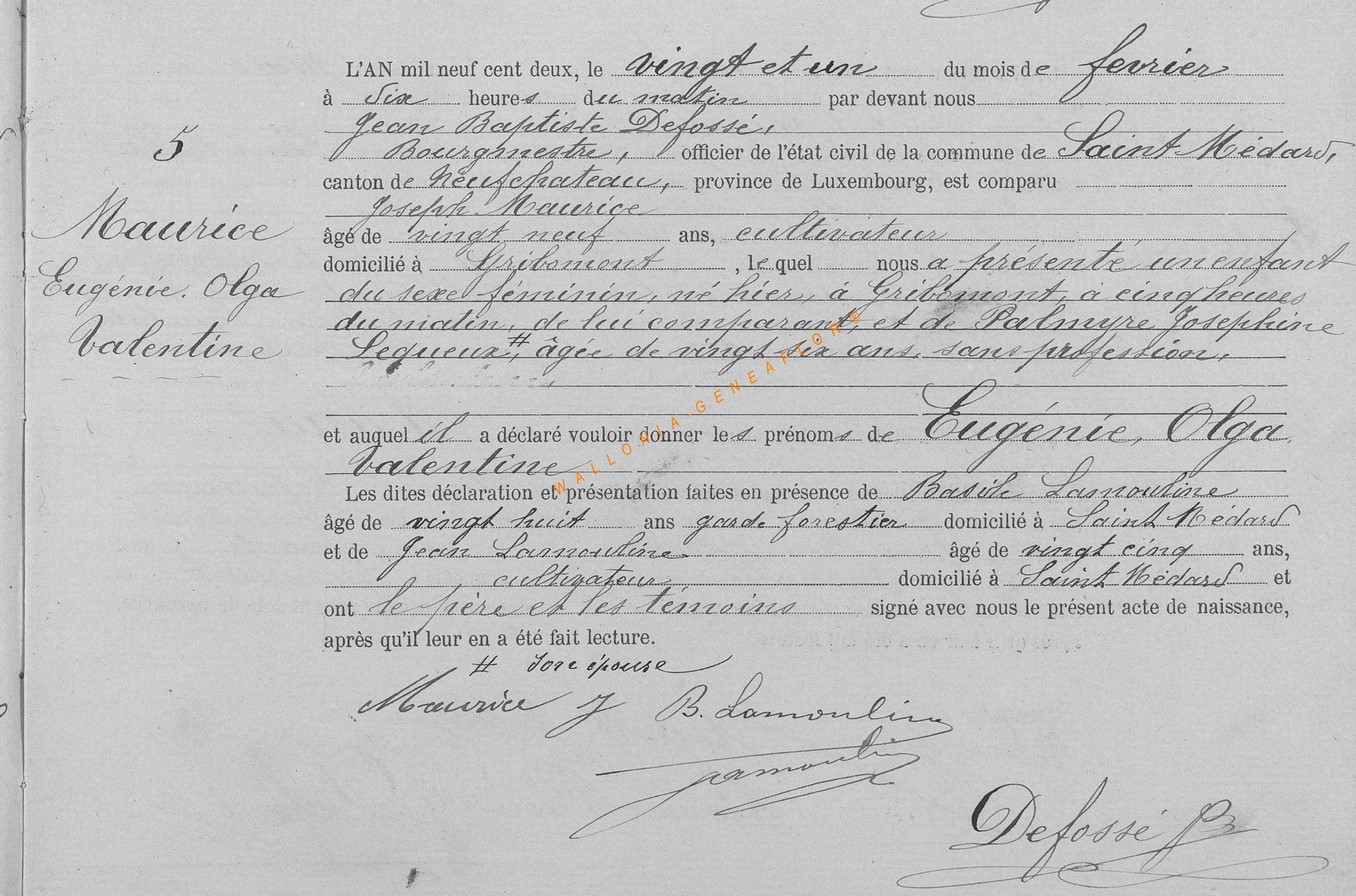 L'AN mil neuf cent deux, le vingt et un du mois de fevrier
à six heures du matin par devant nous
Jean Baptiste Defossé,
5
Bourgmestre, officier de l'état civil de la commune de Saint Médard,
canton de Neufchateau, province de Luxembourg, est comparu
Joseph Maurice
Maurice
âgé de vingt neuf ans, cultivateur
domicilié à Gribomont, lequel nous a présenté un enfant
Eugénie. Olga
du sexe féminin, né hier, à Gribomont, à cinq heures
du matin, de lui comparant et de Palmyre Josephine
Valentine
Lequeux #, âgée de vingt six ans, sans profession,
et auquel il a déclaré vouloir donner les prénoms de Eugénie, Olga
Valentine
Les dites déclaration et présentation faites en présence de Basile Lamouline
âgé de vingt huit ans garde forestier domicilié à Saint Médard
et de Jean Lamouline âgé de vingt cinq ans,
cultivateur domicilié à Saint Médard et
ont le père et les témoins signé avec nous le présent acte de naissance,
après qu'il leur en a été fait lecture.
# son épouse
Maurice J B. Lamouline
Defossé JB
WALLONIA-GENEAFLORE